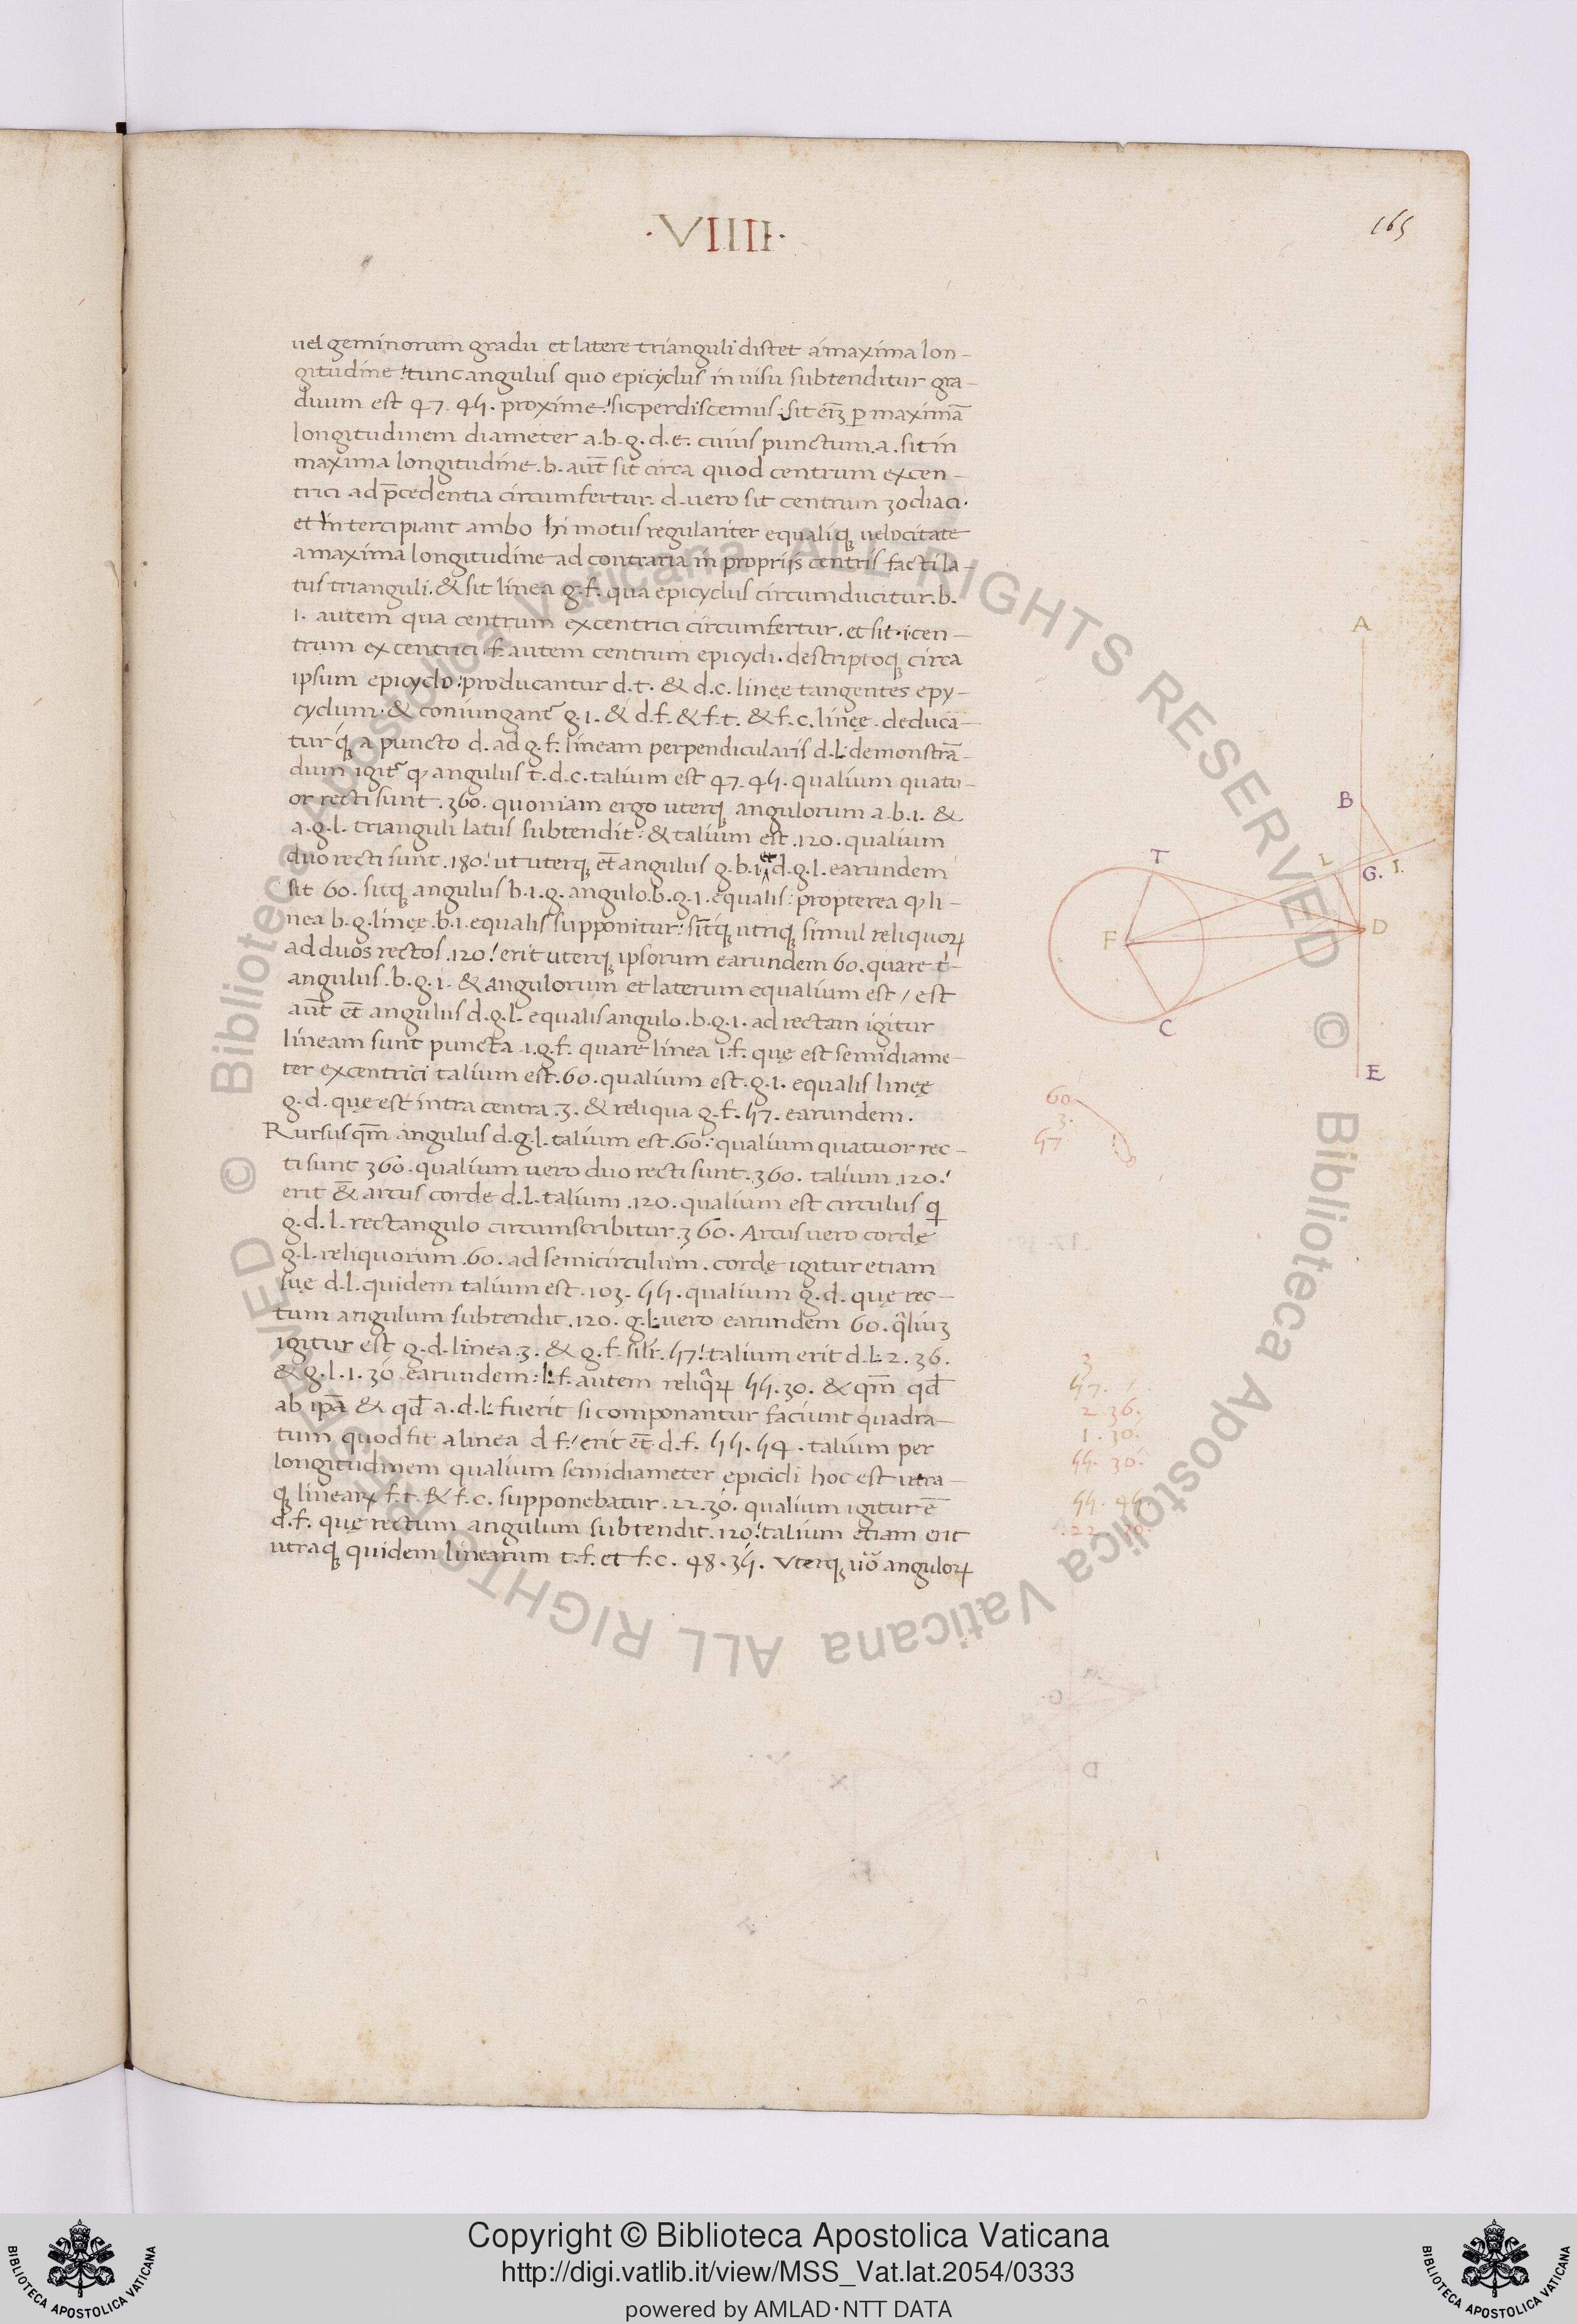 ·VIIII·
165
uel geminorum gradu et latere trianguli distet a maxima lon-
gitudine! tunc angulus quo epicyclus in uisu subtenditur gra-
duum est 47. 45. proxime! sic perdiscemus: sit eĩ3 p maximã
longitudinem diameter a.b.g.d.e. cuius punctum .a. sit in
maxima longitudine .b. aut̃ sit circa quod centrum excen-
trici ad p̃cedentia circumfertur. d. uero sit centrum zodiaci.
et intercipiant ambo hi motus regulariter equaliq3 uelocitate
a maxima longitudine ad contraria in proprijs centris facti la-
tus trianguli. & sit linea g.f. qua epicyclus circumducitur. b.
i. autem qua centrum excentrici circumfertur. et sit .i. cen-
trum excentrici. f. autem centrum epicycli. descriptoq3 circa
ipsum epicyclo! producantur d.t. & d.c. lineę tangentes epy-
cyclum. & coniungant̃ g.i. & d.f. & f.t. & f.c. lineę. deducã-
turq3 a puncto d. ad g.f. lineam perpendicularis d.l: demonstrã-
dum igit̃ ꝙ angulus t.d.c. talium est 47. 45. qualium quatu-
or recti sunt .360. quoniam ergo uterq3 angulorum a.b.i. &
a.g.l. trianguli latus subtendit: & talium est .120. qualium
duo recti sunt .180! ut uterq3 et̃ angulus g.b.i. et d.g.l. earundem
sit 60. sitq3 angulus b.i.g. angulo .b.g.i. equalis: propterea ꝙ li-
nea b.g. lineę .b.i. equalis supponitur: sitq3 utriq3 simul reliquoꝝ
ad duos rectos .120! erit uterq3 ipsorum earundem 60. quare t-
angulus .b.g.i. & angulorum et laterum equalium est / est
aut̃ et̃ angulus d.g.l. equalis angulo .b.g.i. ad rectam igitur
lineam sunt puncta .i.g.f. quare linea i.f. quę est semidiame-
ter excentrici talium est .60. qualium est .g.i. equalis lineę
g.d. quę est intra centra .3. & reliqua g.f. 57. earundem.
Rursus qm̃ angulus d.g.l. talium est .60: qualium quatuor rec-
ti sunt 360. qualium uero duo recti sunt .360. talium .120!
erit & arcus corde d.l. talium .120. qualium est circulus q
g.d.l. rectangulo circumscribitur .360. Arcus uero cordę
g.l. reliquorum .60. ad semicirculum. cordę igitur etiam
suę d.l. quidem talium est .103. 55. qualium g.d. quę rec-
tum angulum subtendit .120. g.l: uero earundem 60. q̃liu3
igitur est g.d. linea .3. & g.f. silr̃. 57! talium erit d.l: 2. 36.
& g.l. 1. 30 earundem: l.f. autem reliq̃ꝝ 55. 30. & qm̃ qd̃
ab ip̃a & qd̃ a .d.l: fuerit si componantur faciunt quadra-
tum quod fit a linea d f! erit et̃ .d.f. 55. 54. talium per
longitudinem qualium semidiameter epicicli hoc est utra-
q3 linearꝝ f.t. & f.c. supponebatur .22. 30. qualium igitur ẽ
d.f. quę rectum angulum subtendit .120! talium etiam erit
utraq3 quidem linearum t.f. et f.c. 48. 35. Vterq3 uõ anguloꝝ
A
B
T
L
G.
I.
F
D
C
E
60
3.
57
3
57.
2 36.
1. 30.
55. 30.
22. 30.
Copyright © Biblioteca Apostolica Vaticana
http://digi.vatlib.it/view/MSS_Vat.lat.2054/0333
powered by AMLAD·NTT DATA
BIBLIOTECA APOSTOLICA VATICANA
BIBLIOTECA APOSTOLICA VATICANA
© Biblioteca Apostolica Vaticana ALL RIGHTS RESERVED © Biblioteca Apostolica Vaticana ALL RIGHTS RESERVED